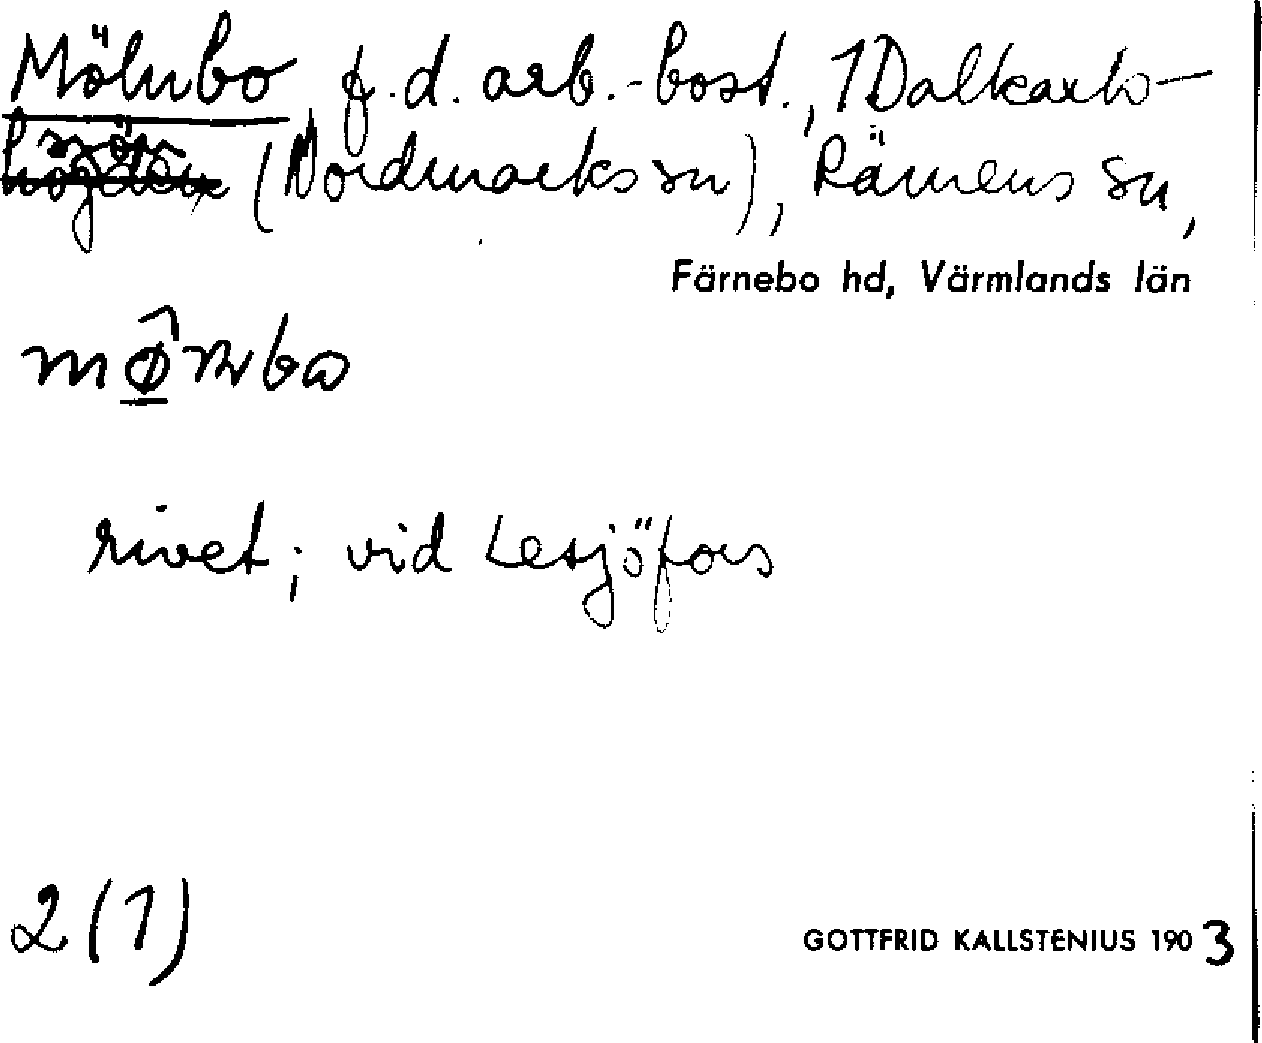 Mölnbo, f.d. arb.-bost., 1 Dalkarls-
(Nordmarks sn), Rämens sn,
Färnebo hd, Värmlands län
rivet; vid Lesjöfors
2 (1)
GOTTFRID KALLSTENIUS 1903